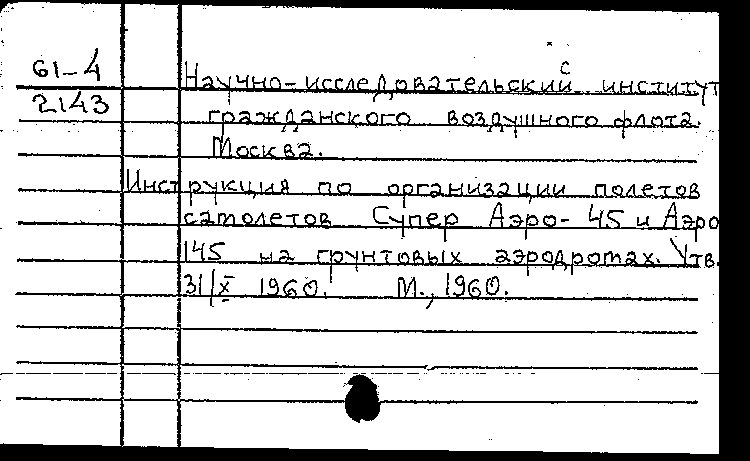 61-4
2143
Научно-исследовательский институт
гражданского воздушного флота.
Москва.
Инструкция по организации полетов
самолетов Супер Аэро-45 и Аэро
145 на грунтовых аэродромах. Утв.
31/X 1960. М., 1960.